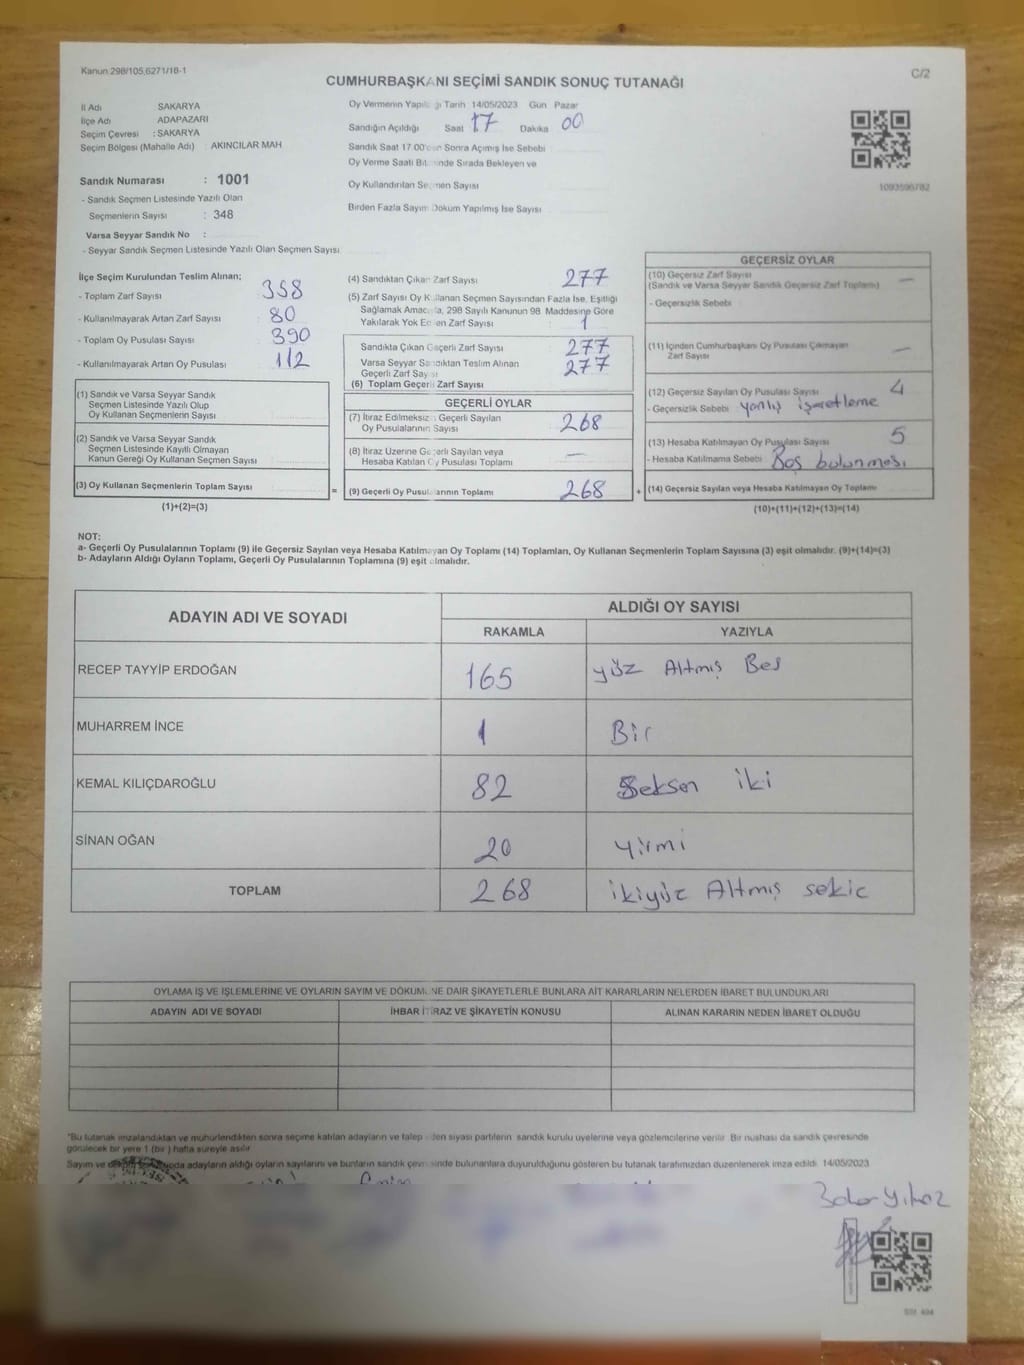 Kanun 298/105,6271/18-1
C/2
CUMHURBAŞKANI SEÇİMİ SANDIK SONUÇ TUTANAĞI
İl Adı SAKARYA
İlçe Adı ADAPAZARI
Seçim Çevresi : SAKARYA
Seçim Bölgesi (Mahalle Adı) AKINCILAR MAH
Sandık Numarası : 1001
- Sandık Seçmen Listesinde Yazılı Olan
Seçmenlerin Sayısı : 348
Varsa Seyyar Sandık No :
- Seyyar Sandık Seçmen Listesinde Yazılı Olan Seçmen Sayısı
Oy Vermenin Yapıldığı Tarih 14/05/2023 Gün Pazar
Sandığın Açıldığı Saat 17 Dakika 00
Sandık Saat 17.00'den Sonra Açımış İse Sebebi
Oy Verme Saati Bitiminde Sırada Bekleyen ve
Oy Kullandırılan Seçmen Sayısı
Birden Fazla Sayım Döküm Yapılmış İse Sayısı
1093596782
İlçe Seçim Kurulundan Teslim Alınan;
- Toplam Zarf Sayısı 358
- Kullanılmayarak Artan Zarf Sayısı 80
- Toplam Oy Pusulası Sayısı 390
- Kullanılmayarak Artan Oy Pusulası 112
(1) Sandık ve Varsa Seyyar Sandık
Seçmen Listesinde Yazılı Olup
Oy Kullanan Seçmenlerin Sayısı
(2) Sandık ve Varsa Seyyar Sandık
Seçmen Listesinde Kayıtlı Olmayan
Kanun Gereği Oy Kullanan Seçmen Sayısı
(3) Oy Kullanan Seçmenlerin Toplam Sayısı
(1)+(2)=(3)
(4) Sandıktan Çıkan Zarf Sayısı 277
(5) Zarf Sayısı Oy Kullanan Seçmen Sayısından Fazla İse, Eşitliği
Sağlamak Amacıyla, 298 Sayılı Kanunun 98. Maddesine Göre
Yakılarak Yok Edilen Zarf Sayısı : 1
Sandıkta Çıkan Geçerli Zarf Sayısı 277
Varsa Seyyar Sandıktan Teslim Alınan
Geçerli Zarf Sayısı 277
(6) Toplam Geçerli Zarf Sayısı
GEÇERLİ OYLAR
(7) İtiraz Edilmeksizin Geçerli Sayılan
Oy Pusulalarının Sayısı 268
(8) İtiraz Üzerine Geçerli Sayılan veya
Hesaba Katılan Oy Pusulası Toplamı —
= (9) Geçerli Oy Pusulalarının Toplamı 268 +
GEÇERSİZ OYLAR
(10) Geçersiz Zarf Sayısı —
(Sandık ve Varsa Seyyar Sandık Geçersiz Zarf Toplamı)
- Geçersizlik Sebebi
(11) İçinden Cumhurbaşkanı Oy Pusulası Çıkmayan
Zarf Sayısı —
(12) Geçersiz Sayılan Oy Pusulası Sayısı 4
- Geçersizlik Sebebi yanlış işaretleme
(13) Hesaba Katılmayan Oy Pusulası Sayısı 5
- Hesaba Katılmama Sebebi Boş bulunması
(14) Geçersiz Sayılan veya Hesaba Katılmayan Oy Toplamı
(10)+(11)+(12)+(13)=(14)
NOT:
a- Geçerli Oy Pusulalarının Toplamı (9) ile Geçersiz Sayılan veya Hesaba Katılmayan Oy Toplamı (14) Toplamları, Oy Kullanan Seçmenlerin Toplam Sayısına (3) eşit olmalıdır. (9)+(14)=(3)
b- Adayların Aldığı Oyların Toplamı, Geçerli Oy Pusulalarının Toplamına (9) eşit olmalıdır.
ADAYIN ADI VE SOYADI
ALDIĞI OY SAYISI
RAKAMLA YAZIYLA
RECEP TAYYİP ERDOĞAN 165 yüz Altmış Beş
MUHARREM İNCE 1 Bir
KEMAL KILIÇDAROĞLU 82 Seksen iki
SİNAN OĞAN 20 yirmi
TOPLAM 268 ikiyüz Altmış sekiz
OYLAMA İŞ VE İŞLEMLERİNE VE OYLARIN SAYIM VE DÖKÜMÜNE DAİR ŞİKAYETLERLE BUNLARA AİT KARARLARIN NELERDEN İBARET BULUNDUKLARI
ADAYIN ADI VE SOYADI İHBAR İTİRAZ VE ŞİKAYETİN KONUSU ALINAN KARARIN NEDEN İBARET OLDUĞU
*Bu tutanak imzalandıktan ve mühürlendikten sonra seçime katılan adayların ve talep eden siyasi partilerin sandık kurulu üyelerine veya gözlemcilerine verilir. Bir nüshası da sandık çevresinde
görülecek bir yere 1 (bir) hafta süreyle asılır
Sayım ve dökümü adayların aldığı oyların sayılarını ve bunların sandık çevresinde bulunanlara duyurulduğunu gösteren bu tutanak tarafımızdan düzenlenerek imza edildi. 14/05/2023